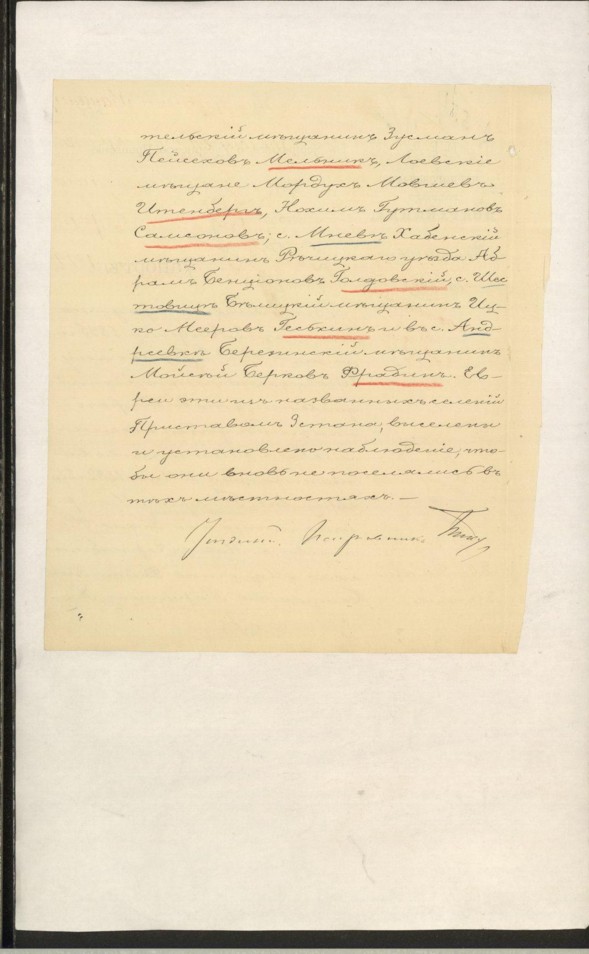 тельскій мѣщанинъ Зусманъ
Пейсеховъ Мельникъ, Лоевскіе
мѣщане Мордухъ Мовшевъ
Итенбергъ, Нохимъ Гутмановъ
Самсоновъ; с. Мневъ Хабенскій
мѣщанинъ Рѣчицкаго уѣзда Аб-
рамъ Бенціоновъ Голдовскій, с. Шес
товицъ Бѣлицкій мѣщанинъ Иц-
ко Мееровъ Геськинъ и въ с. Анд-
реевкѣ Березинскій мѣщанинъ
Мойсѣй Берковъ Фрадинъ. Ев-
реи эти изъ названныхъ селеній
Приставомъ 3 стана, выселены
и установлено наблюденіе, что-
бы они вновь не поселялись въ
тѣхъ мѣстностяхъ. —
Уѣздный Исправникъ